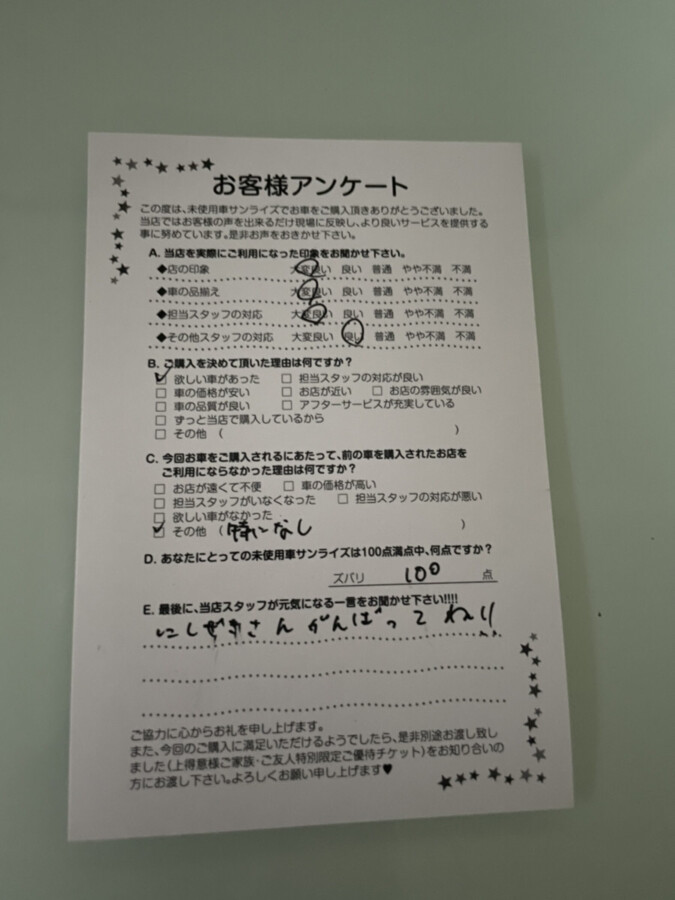 お客様アンケート
この度は、未使用車サンライズでお車をご購入頂きありがとうございました。
当店ではお客様の声を出来るだけ現場に反映し、より良いサービスを提供する
事に努めています。是非お声をおきかせ下さい。
A. 当店を実際にご利用になった印象をお聞かせ下さい。
◆店の印象 大変良い 良い 普通 やや不満 不満
◆車の品揃え 大変良い 良い 普通 やや不満 不満
◆担当スタッフの対応 大変良い 良い 普通 やや不満 不満
◆その他スタッフの対応 大変良い 良い 普通 やや不満 不満
B. ご購入を決めて頂いた理由は何ですか?
☑ 欲しい車があった □ 担当スタッフの対応が良い
□ 車の価格が安い □ お店が近い □ お店の雰囲気が良い
□ 車の品質が良い □ アフターサービスが充実している
□ ずっと当店で購入しているから
□ その他 ( )
C. 今回お車をご購入されるにあたって、前の車を購入されたお店を
ご利用にならなかった理由は何ですか?
□ お店が遠くて不便 □ 車の価格が高い
□ 担当スタッフがいなくなった □ 担当スタッフの対応が悪い
□ 欲しい車がなかった
☑ その他 ( 特になし )
D. あなたにとっての未使用車サンライズは100点満点中、何点ですか?
ズバリ 100 点
E. 最後に、当店スタッフが元気になる一言をお聞かせ下さい!!!!
さん がんばって ね!!
ご協力に心からお礼を申し上げます。
また、今回のご購入に満足いただけるようでしたら、是非別途お渡し致し
ました(上得意様ご家族・ご友人特別限定ご優待チケット)をお知り合いの
方にお渡し下さい。よろしくお願い申し上げます♥